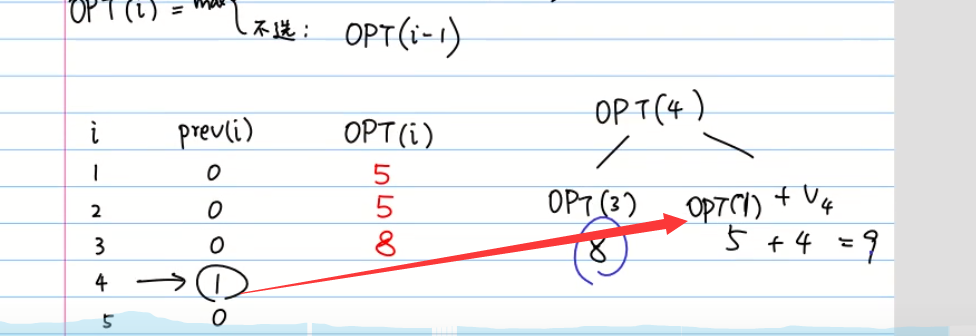 OPT(i) = max
不选: OPT(i-1)
i prev(i) OPT(i)
1 0 5
2 0 5
3 0 8
4 → 1
5 0
OPT(4)
OPT(3) OPT(1) + V4
8 5 + 4 = 9